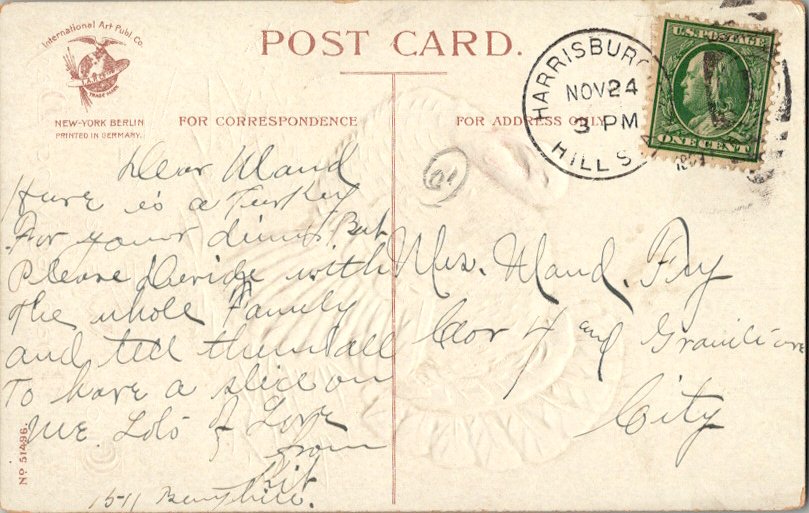 International Art Publ. Co.
TRADE MARK
NEW-YORK BERLIN
PRINTED IN GERMANY.
POST CARD.
FOR CORRESPONDENCE
FOR ADDRESS ONLY.
HARRISBURG
NOV 24
3 PM
HILL S
U.S. POSTAGE
ONE CENT
Dear Maud
Here is a Turkey
For your dinner. But
Please Devide with
the whole Family
and tell them all
To have a slice on
me. Lots of Love
from
Kit
1511 Berryhill.
Mrs. Maud. Fry
Cor 4 and Granite ave
City
No 51496.